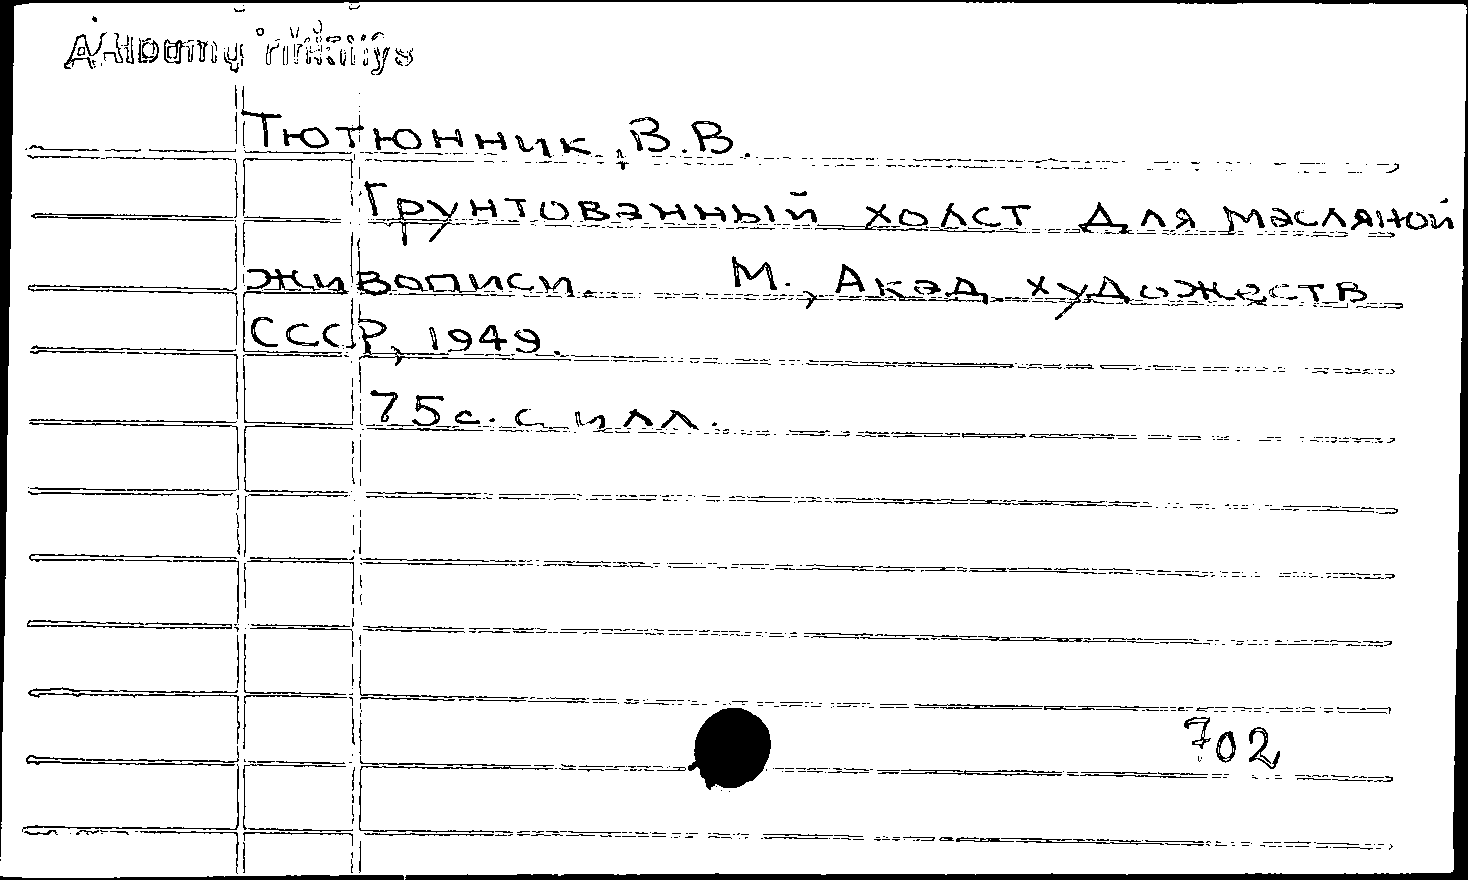 Albumų rinkinys
Тютюнник, В.В.
Грунтованный холст для масляной
живописи. М., Акад. художеств
СССР, 1949.
75 с. с илл.
702